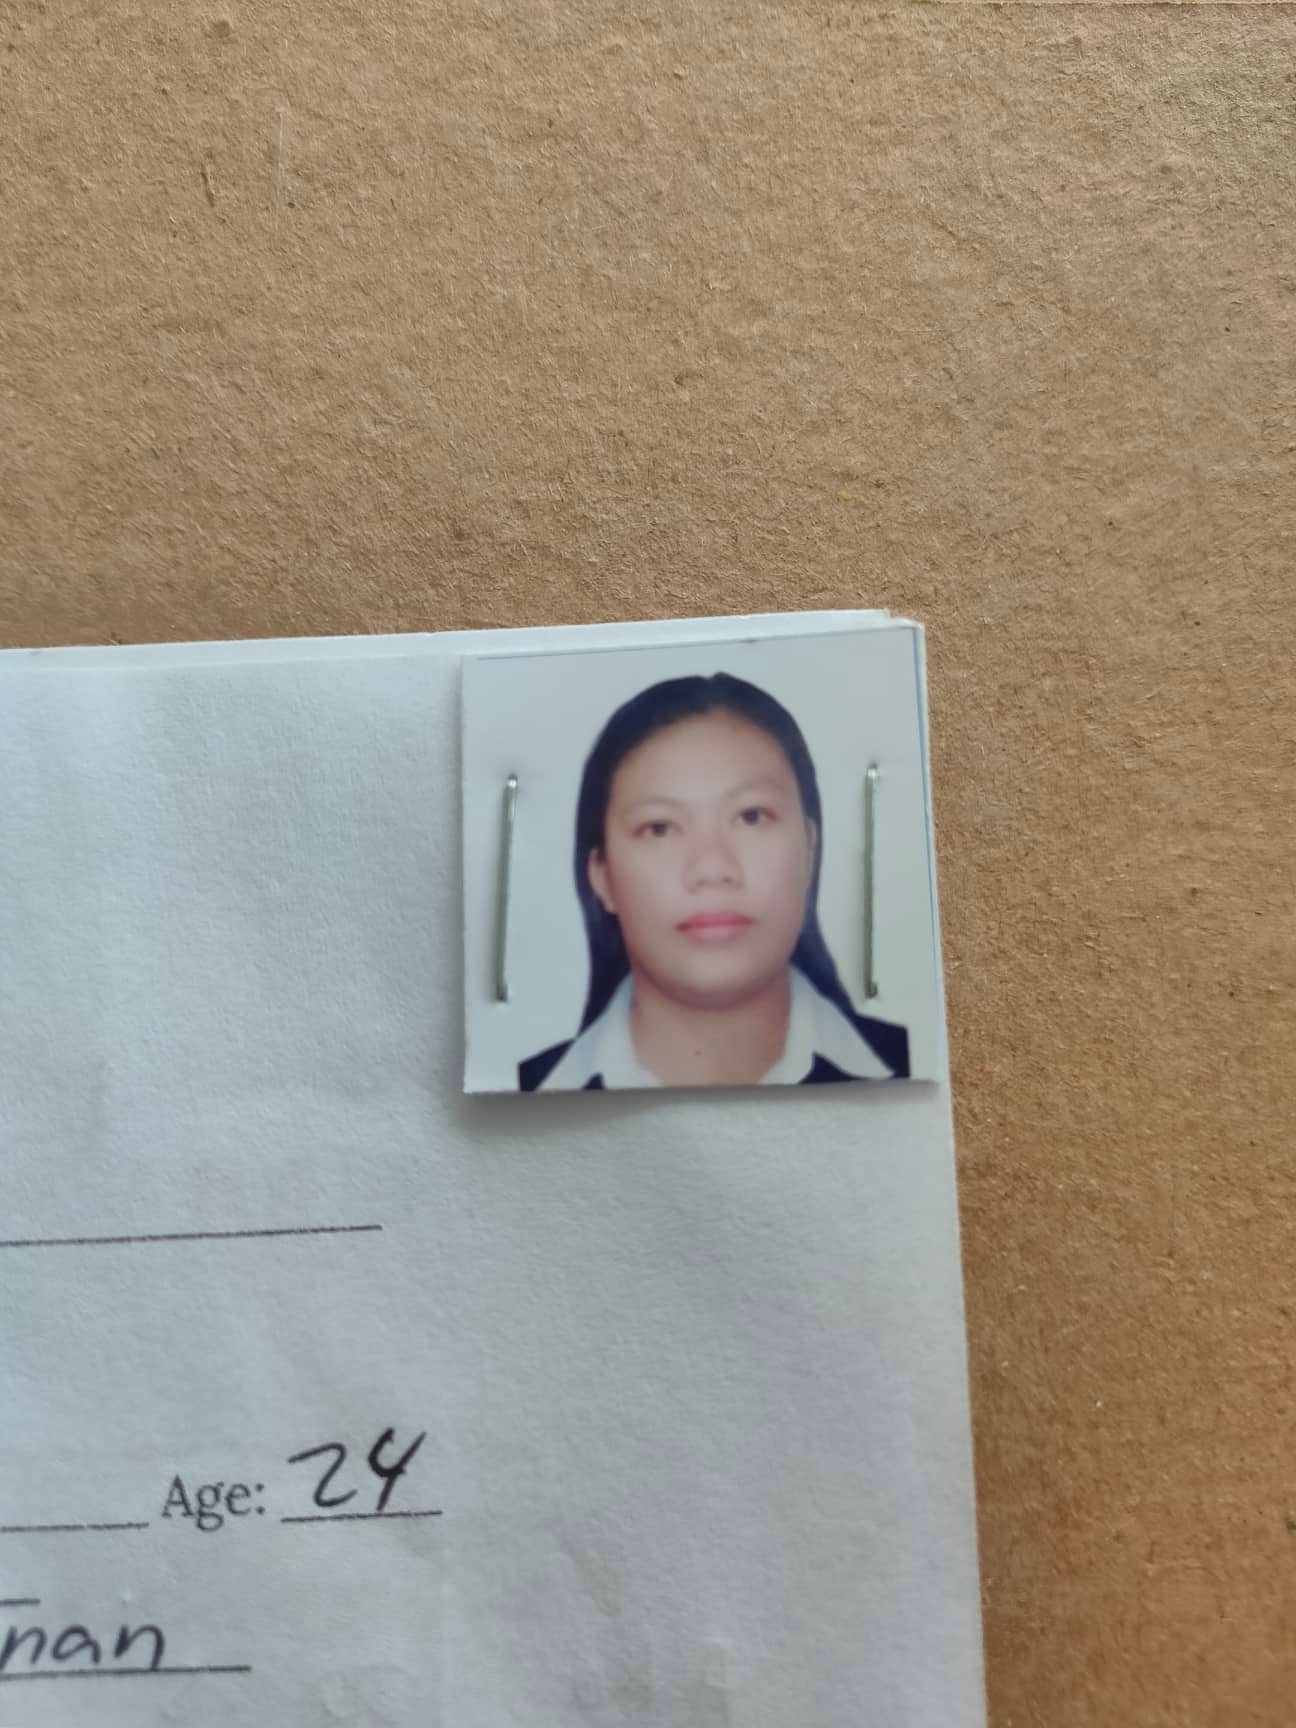 Age: 24
nan